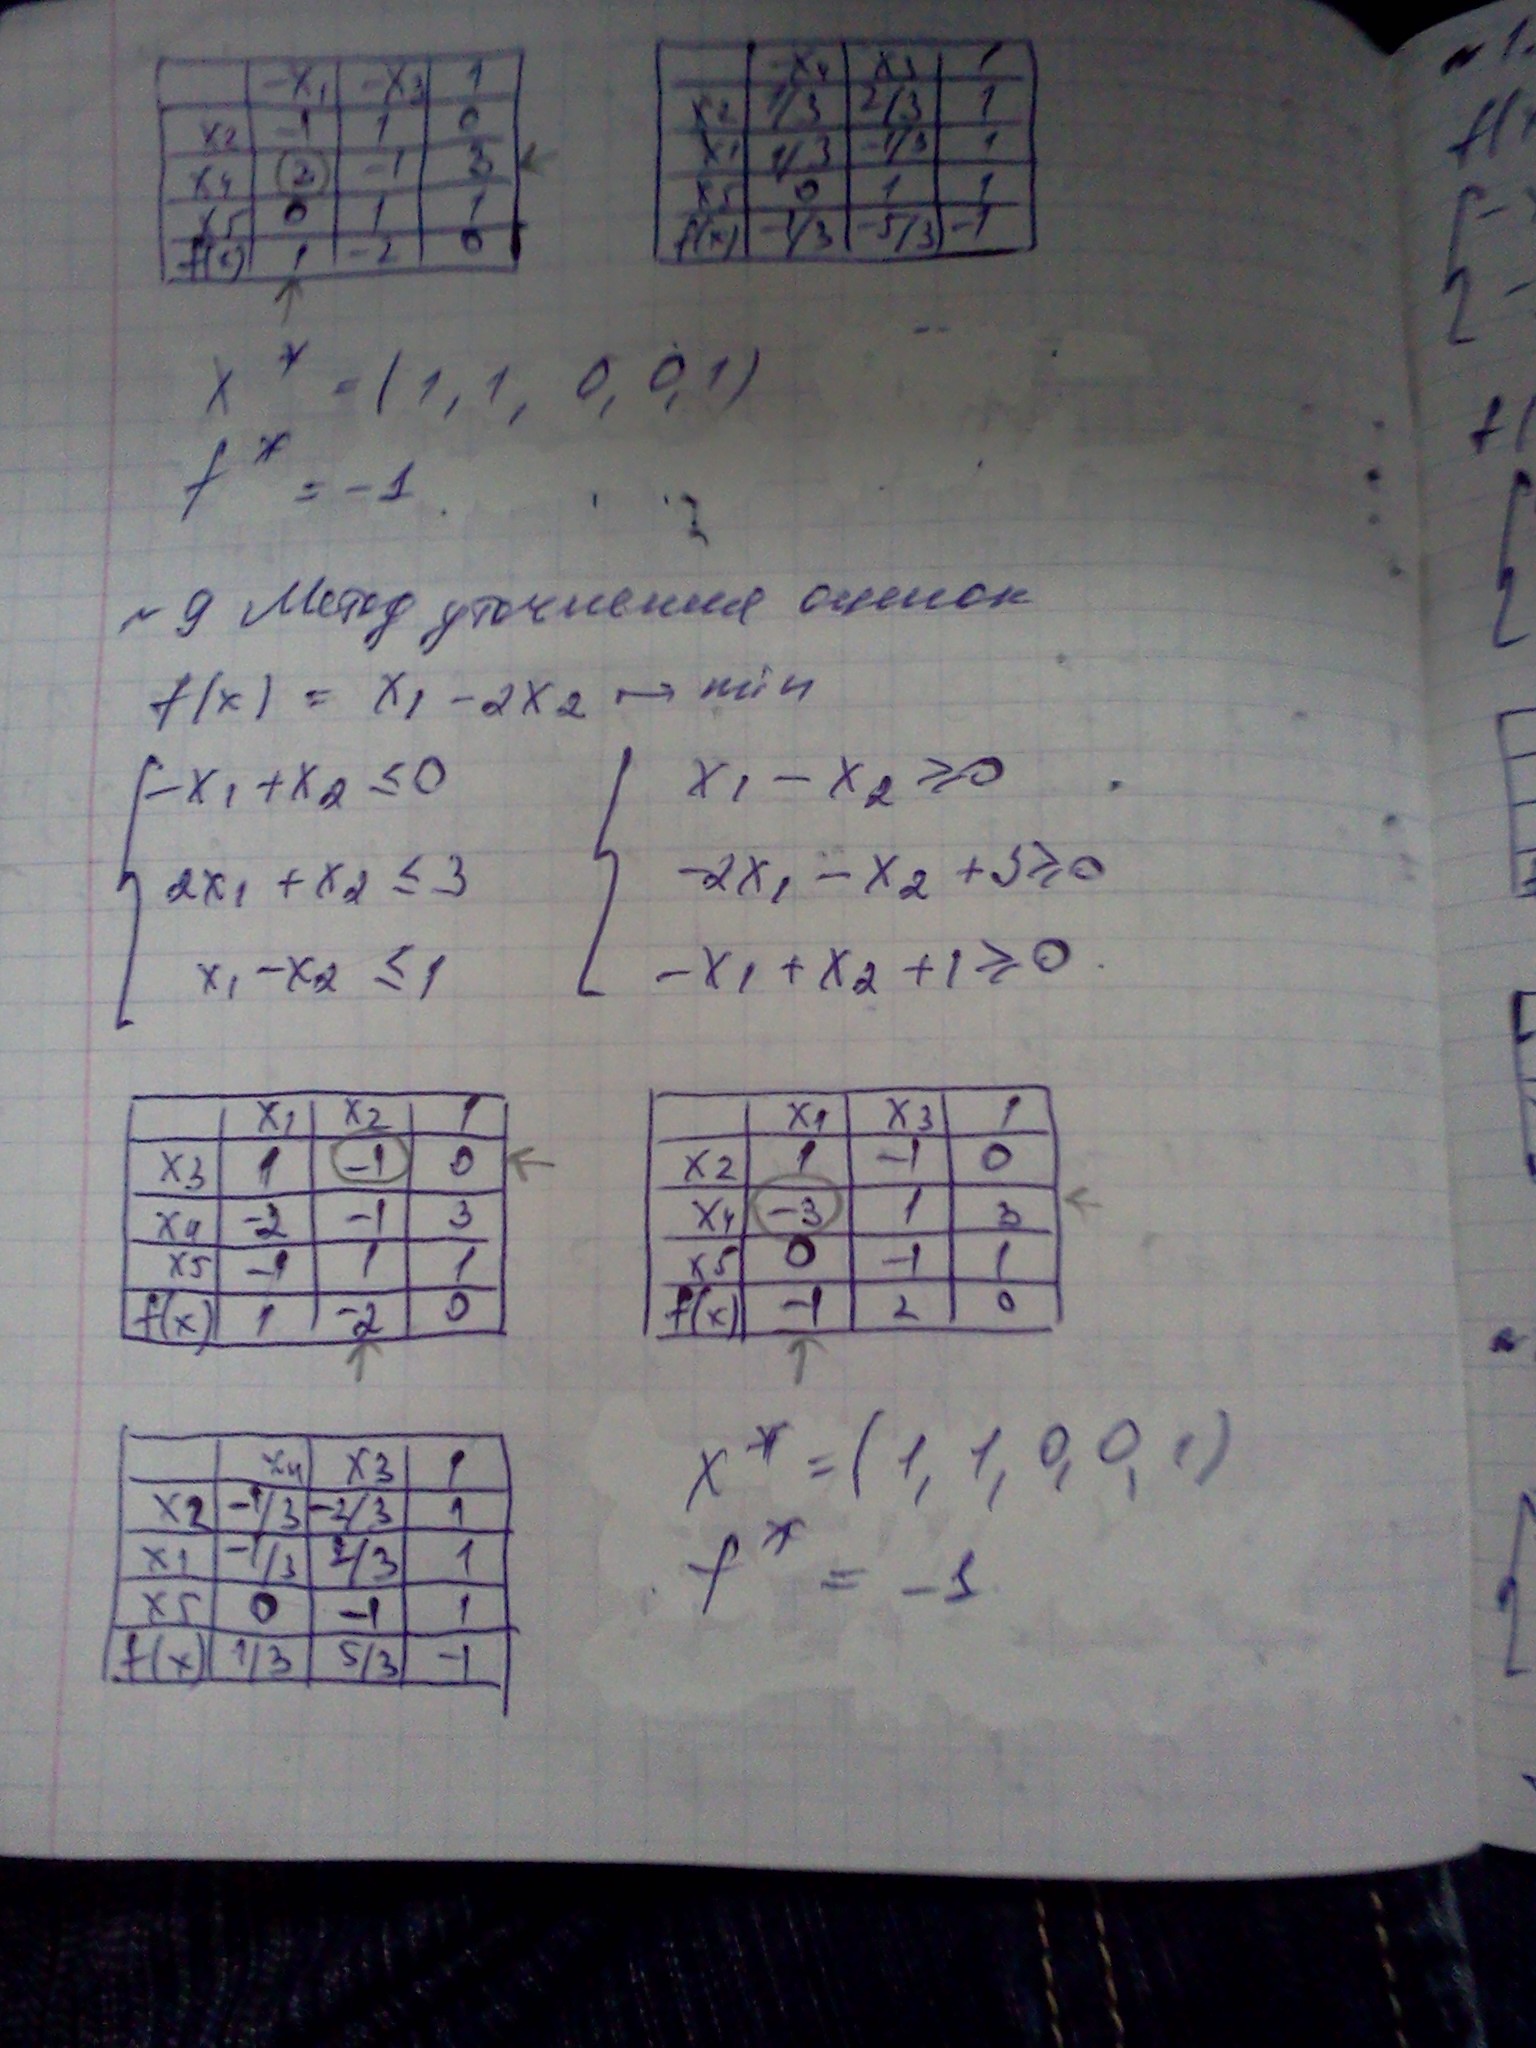 -x1 -x3 1
x2 -1 1 0
x4 3 -1 3
x5 0 1 1
f(x) 1 -2 0
-x4 x3 1
x2 1/3 2/3 1
x1 1/3 -1/3 1
x5 0 1 1
f(x) -1/3 -5/3 -1
x* = (1, 1, 0, 0, 1)
f* = -1
~9 Метод уточнения оценок
f(x) = x1 - 2x2 → min
-x1 + x2 ≤ 0
2x1 + x2 ≤ 3
x1 - x2 ≤ 1
x1 - x2 ≥ 0
-2x1 - x2 + 3 ≥ 0
-x1 + x2 + 1 ≥ 0
x1 x2 1
x3 1 -1 0
x4 -2 -1 3
x5 -1 1 1
f(x) 1 -2 0
x1 x3 1
x2 1 -1 0
x4 -3 1 3
x5 0 -1 1
f(x) -1 2 0
x4 x3 1
x2 -1/3 -2/3 1
x1 -1/3 2/3 1
x5 0 -1 1
f(x) 1/3 5/3 -1
x* = (1, 1, 0, 0, 1)
f* = -1